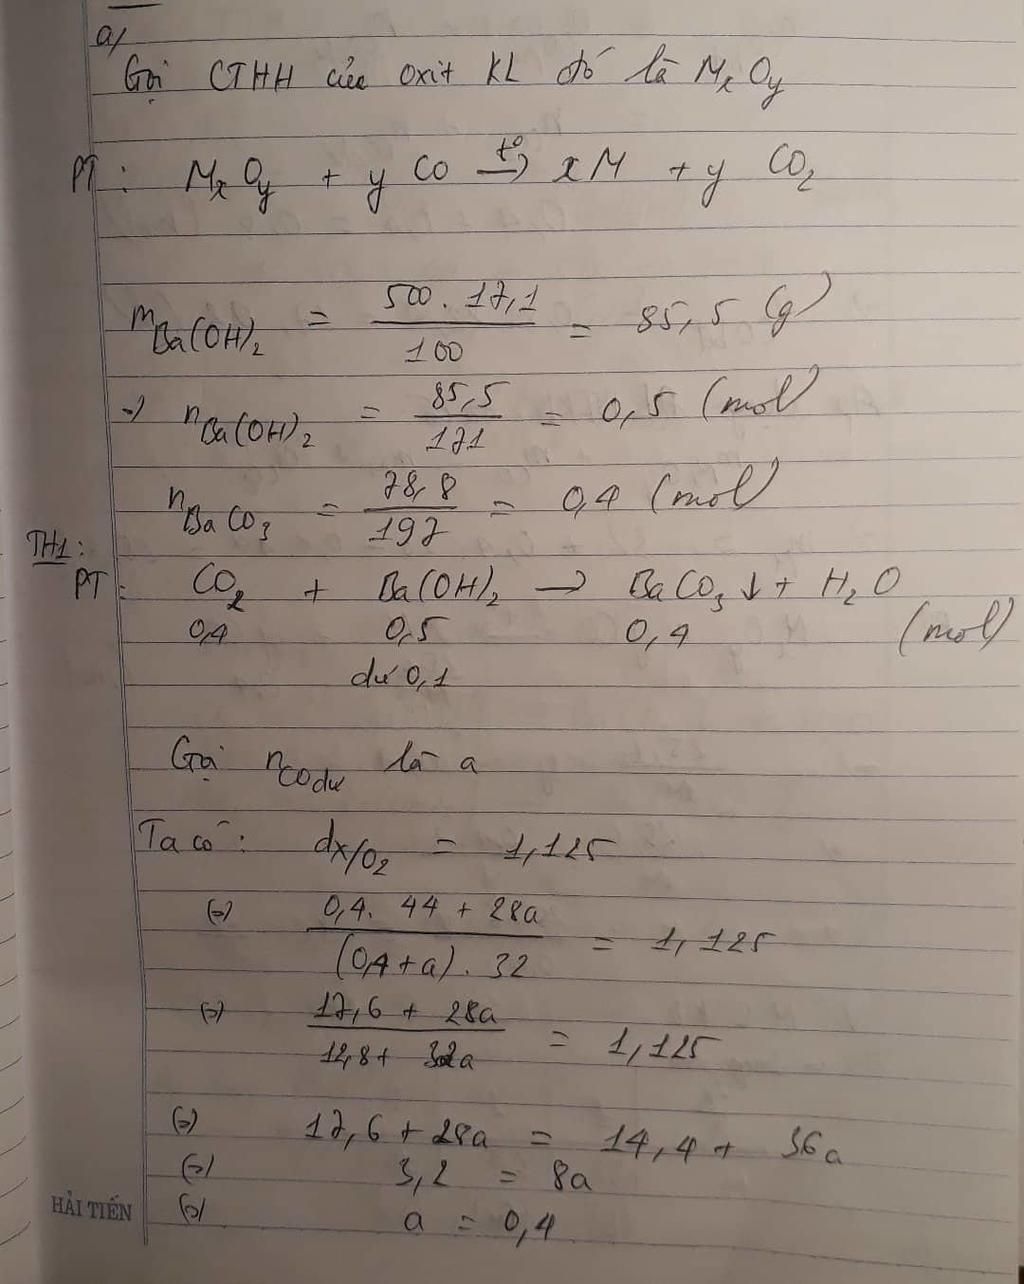 a/
Gọi CTHH của oxit KL đó là MxOy
PT: MxOy + y CO t°→ xM + y CO2
mBa(OH)2 = 500.17,1/100 = 85,5 (g)
=> nBa(OH)2 = 85,5/171 = 0,5 (mol)
nBaCO3 = 78,8/197 = 0,4 (mol)
TH1:
PT: CO2 + Ba(OH)2 → BaCO3↓ + H2O
0,4 0,5 0,4 (mol)
dư 0,1
Gọi nCO dư là a
Ta có: dX/O2 = 1,125
(=) 0,4. 44 + 28a/(0,4+a). 32 = 1,125
(=) 17,6 + 28a/12,8 + 32a = 1,125
(=) 17,6 + 28a = 14,4 + 36a
(=) 3,2 = 8a
HẢI TIẾN (=) a = 0,4